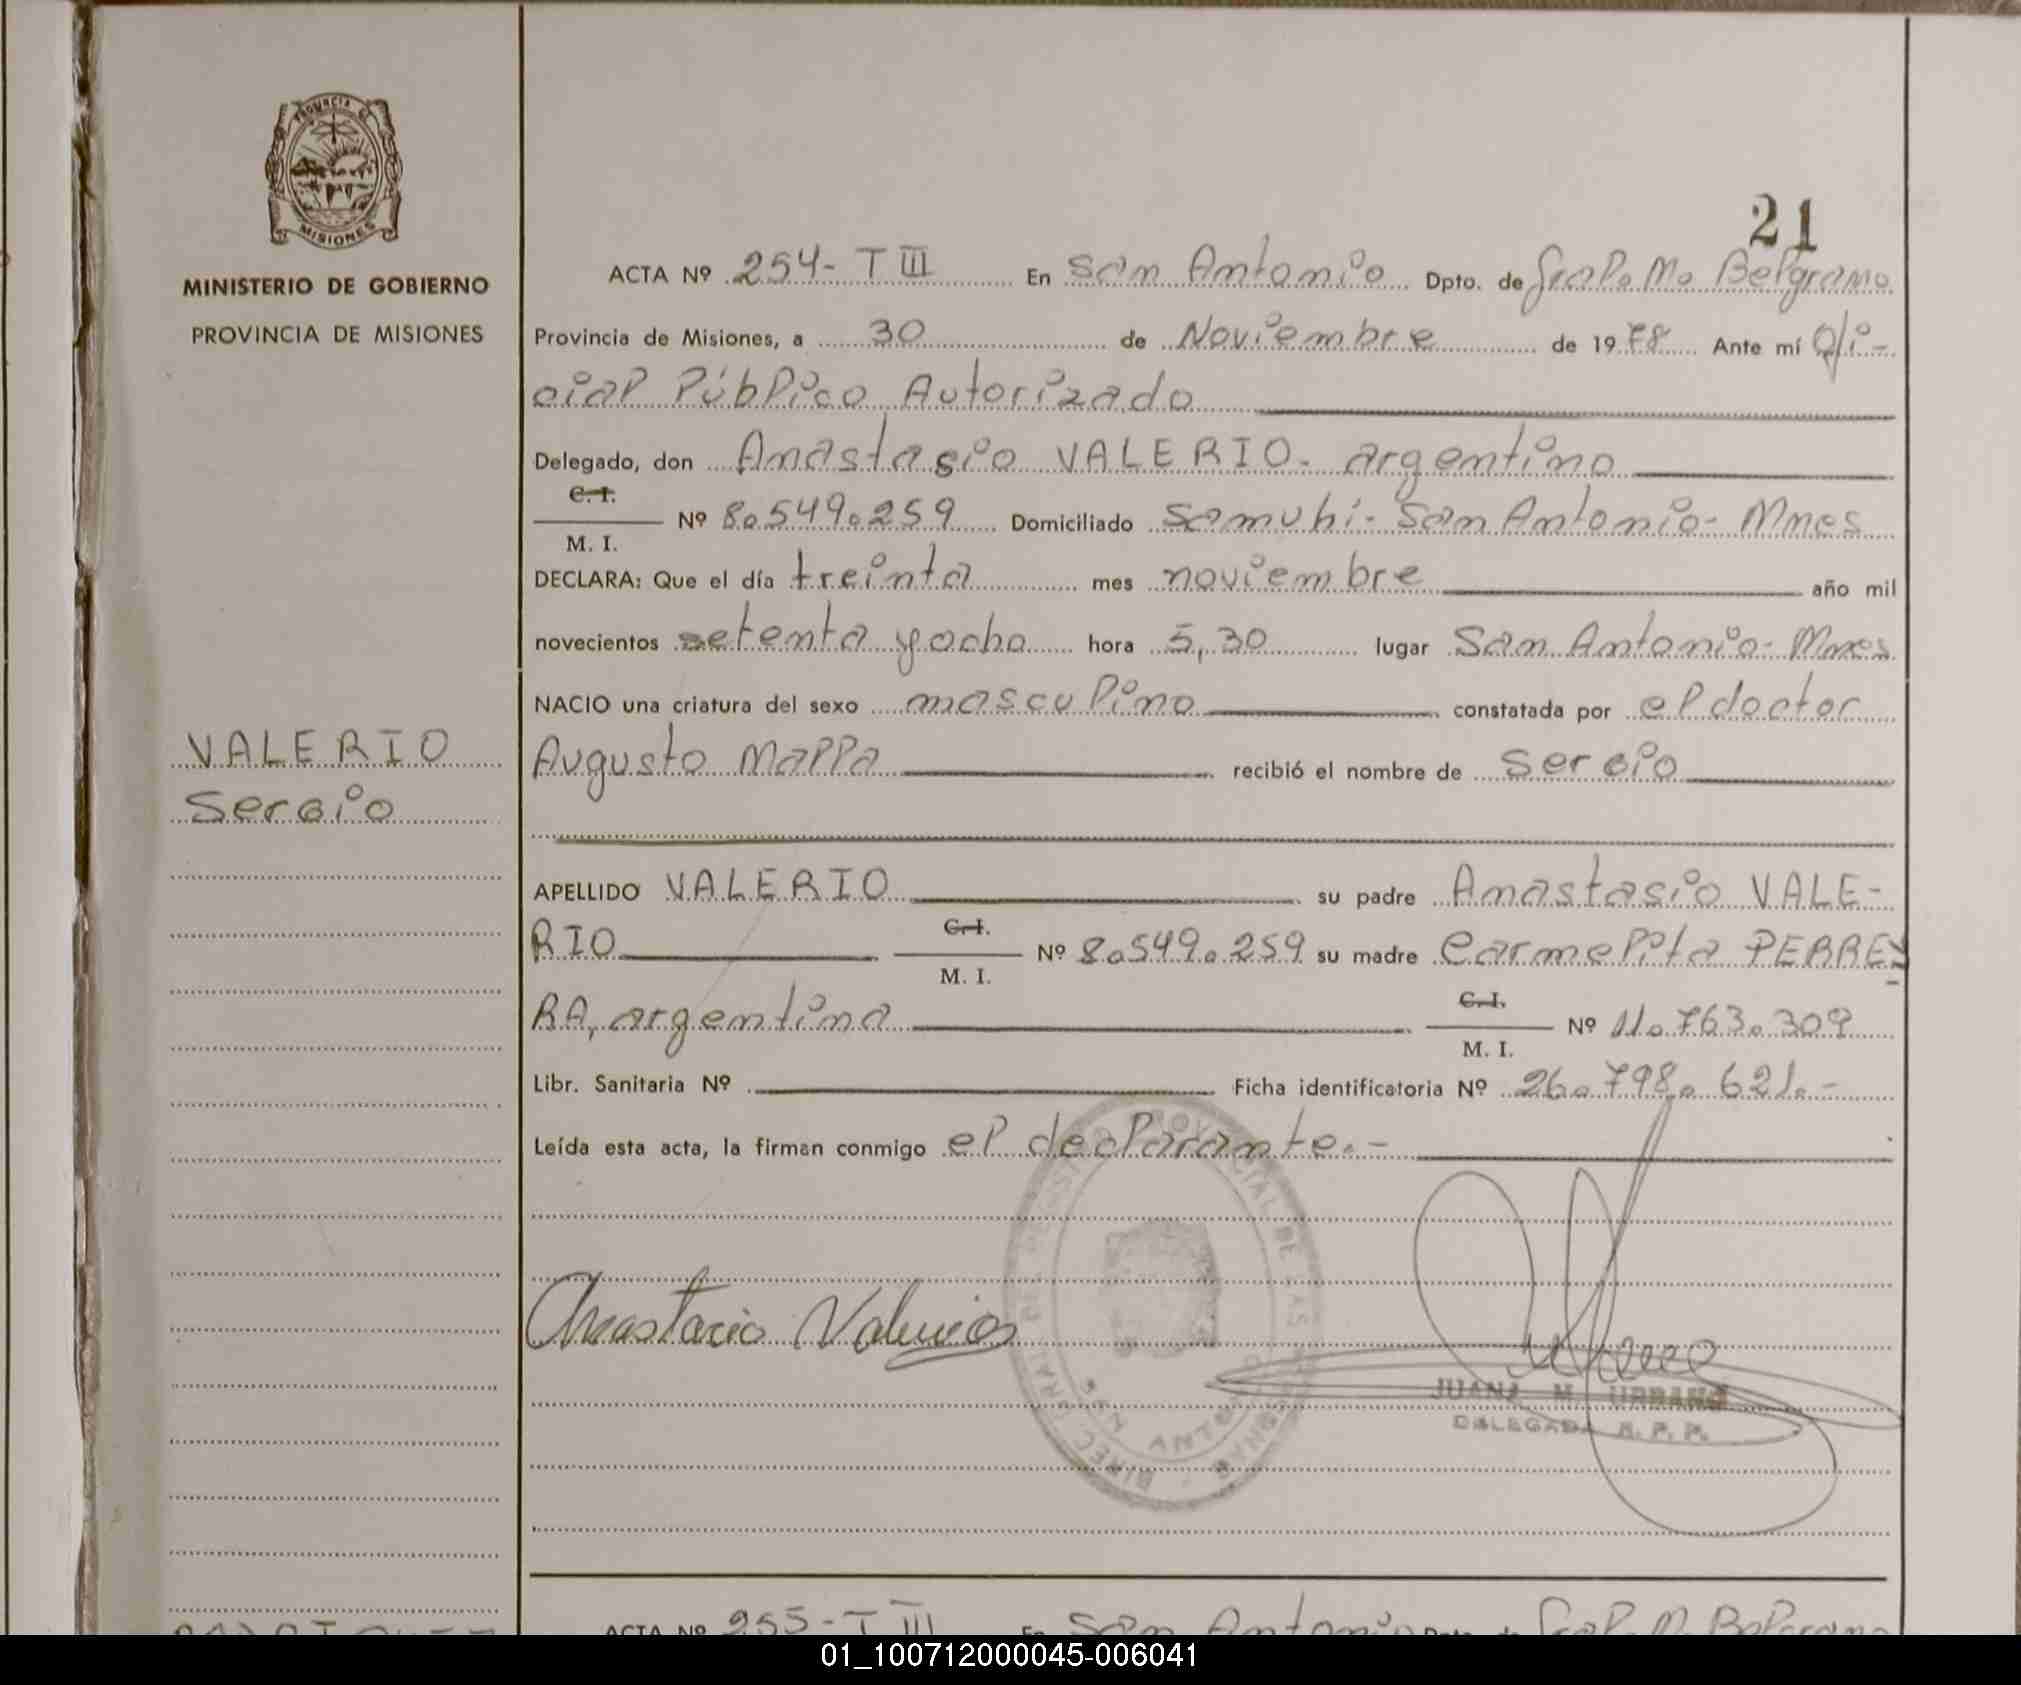 PROVINCIA DE
MISIONES
MINISTERIO DE GOBIERNO
PROVINCIA DE MISIONES
VALERIO
Sergio
21
ACTA Nº 254- T III En San Antonio Dpto. de Gral. M. Belgrano
Provincia de Misiones, a 30 de Noviembre de 1978 Ante mí Ofi-
cial Público Autorizado
Delegado, don Anastasio VALERIO- argentino
C. I.
M. I.
Nº 8.549.259 Domiciliado Samuhí- San Antonio- Mnes
DECLARA: Que el día treinta mes noviembre año mil
novecientos setenta y ocho hora 5,30 lugar San Antonio- Mnes
NACIO una criatura del sexo masculino constatada por el doctor
Augusto Malla recibió el nombre de Sergio
APELLIDO VALERIO su padre Anastasio VALE-
RIO C. I. M. I. Nº 8.549.259 su madre Carmelita PERREY
RA, argentina C. I. M. I. Nº 11.763.309
Libr. Sanitaria Nº Ficha identificatoria Nº 26.798.621.-
Leída esta acta, la firman conmigo el declarante.-
Anastacio Valerios
JUANA M. URBANO
DELEGADA R. P. P.
ACTA Nº 255- T III En San Antonio Dpto. de Gral. M. Belgrano
01_100712000045-006041